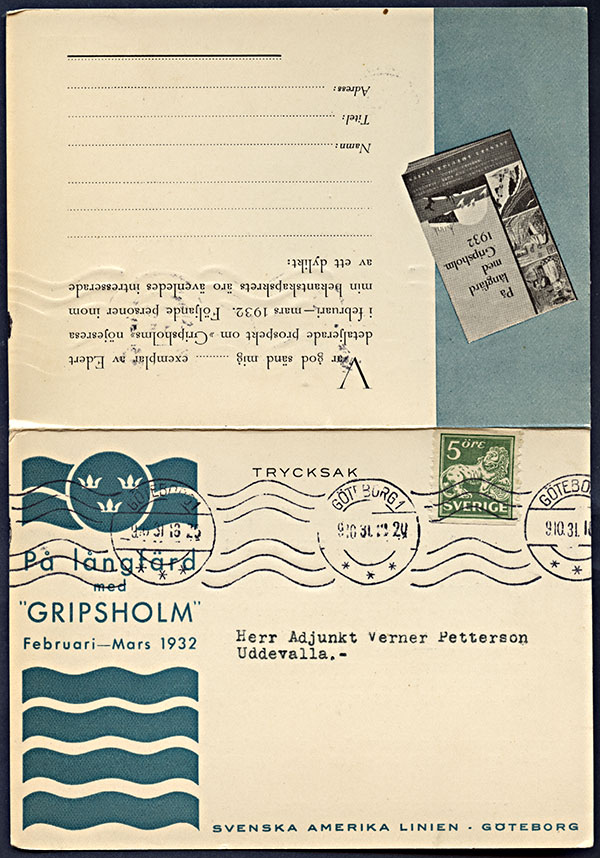 Var god sänd mig .......... exemplar av Edert
detaljerade prospekt om »Gripsholms» nöjesresa
i februari—mars 1932. Följande personer inom
min bekantskapskrets äro ävenledes intresserade
av ett dylikt:
Namn:
Titel:
Adress:
På
långfärd
med
Gripsholm
1932
TRYCKSAK
5 ÖRE
SVERIGE
GÖTEBORG 1
9.10.31.18
GÖTEBORG 1
9.10.31.
GÖTEBO
9.10.31.18
På långfärd
med
"GRIPSHOLM"
Februari—Mars 1932
Herr Adjunkt Verner Petterson
Uddevalla.-
SVENSKA AMERIKA LINIEN · GÖTEBORG